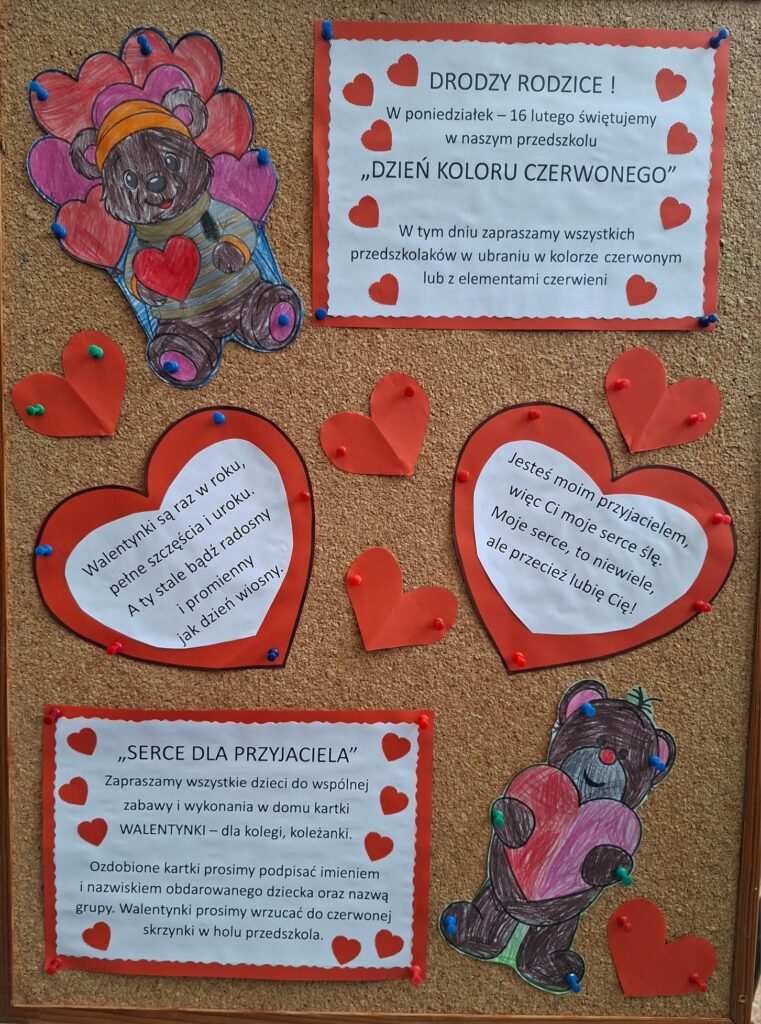 DRODZY RODZICE !
W poniedziałek – 16 lutego świętujemy
w naszym przedszkolu
„DZIEŃ KOLORU CZERWONEGO”
W tym dniu zapraszamy wszystkich
przedszkolaków w ubraniu w kolorze czerwonym
lub z elementami czerwieni
Walentynki są raz w roku,
pełne szczęścia i uroku.
A ty stale bądź radosny
i promienny
jak dzień wiosny.
Jesteś moim przyjacielem,
więc Ci moje serce ślę.
Moje serce, to niewiele,
ale przecież lubię Cię!
„SERCE DLA PRZYJACIELA”
Zapraszamy wszystkie dzieci do wspólnej
zabawy i wykonania w domu kartki
WALENTYNKI – dla kolegi, koleżanki.
Ozdobione kartki prosimy podpisać imieniem
i nazwiskiem obdarowanego dziecka oraz nazwą
grupy. Walentynki prosimy wrzucać do czerwonej
skrzynki w holu przedszkola.